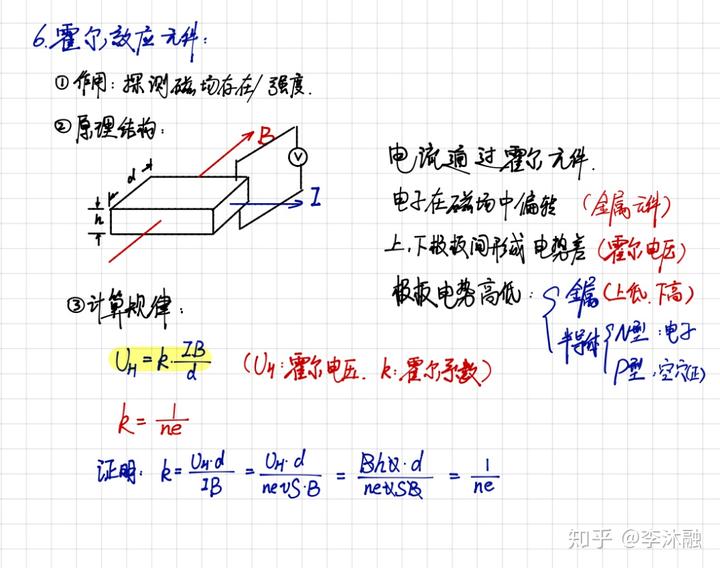 6.霍尔效应元件:
①作用:探测磁场存在/强度.
②原理结构:
B
V
d
I
h
电流通过霍尔元件.
电子在磁场中偏转 (金属元件)
上、下极板间形成电势差(霍尔电压)
极板电势高低: 金属(上低.下高)
半导体 N型:电子
P型:空穴(正)
③计算规律:
U_H = k·IB/d (U_H:霍尔电压. k:霍尔系数)
k = 1/ne
证明: k = U_H·d/IB = U_H·d/nevS·B = Bhv·d/nevSB = 1/ne
知乎 @李沐融